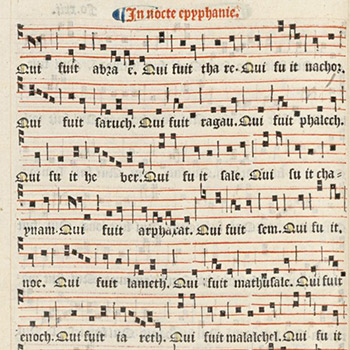 In nocte epyphanie.
Qui fuit abra e. Qui fuit tha re. Qui fu it nachor.
Qui fuit saruch. Qui fuit ragau. Qui fuit phalech.
Qui fu it he ber. Qui fu it sale. Qui fu it cha-
ynam. Qui fuit arphaxat. Qui fuit sem. Qui fu it.
noe. Qui fuit lameth. Qui fuit mathusale. Qui fuit
enoch. Qui fuit ia reth. Qui fuit malalehel. Qui fu it